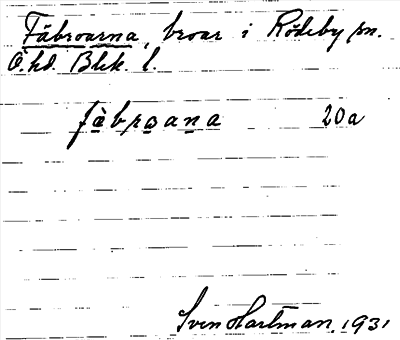 Fäbroarna, broar i Rödeby sn.
Ö. hd. Blek. l.
fäbroana 20a
Sven Hartman, 1931